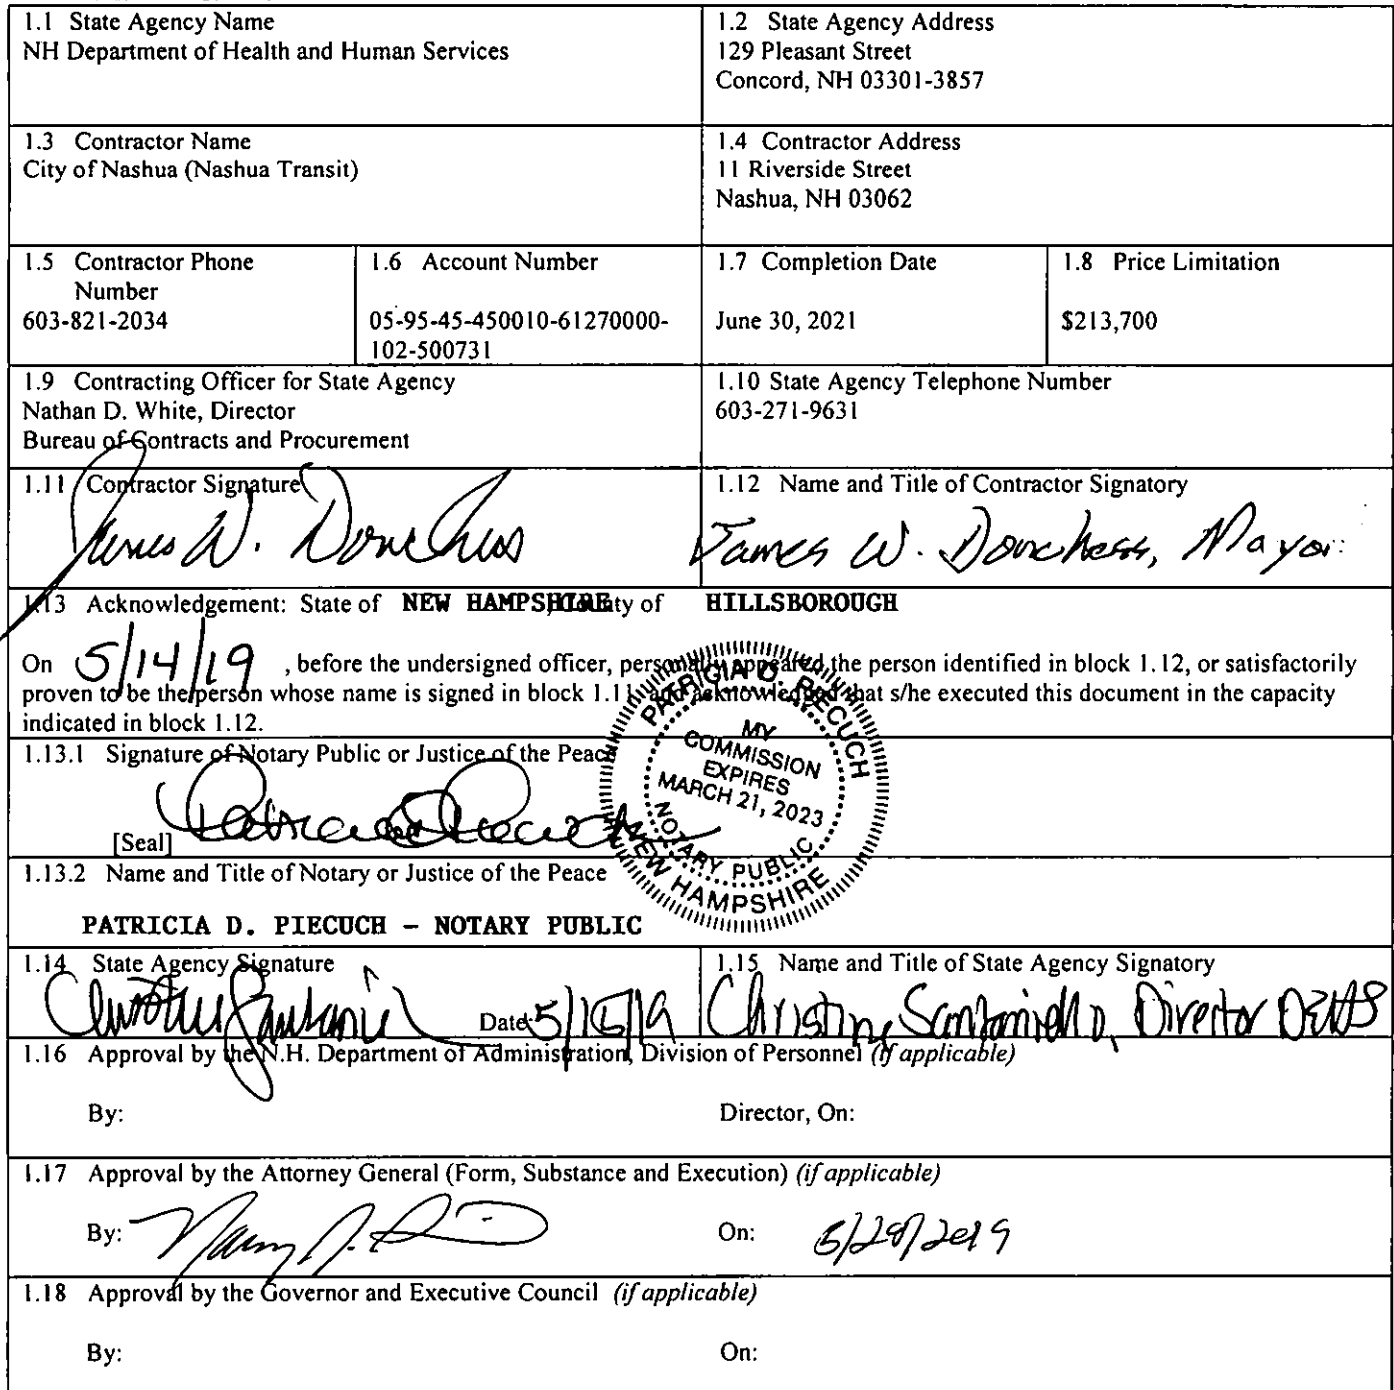 1.1 State Agency Name
NH Department of Health and Human Services
1.2 State Agency Address
129 Pleasant Street
Concord, NH 03301-3857
1.3 Contractor Name
City of Nashua (Nashua Transit)
1.4 Contractor Address
11 Riverside Street
Nashua, NH 03062
1.5 Contractor Phone
Number
603-821-2034
1.6 Account Number
05-95-45-450010-61270000-
102-500731
1.7 Completion Date
June 30, 2021
1.8 Price Limitation
$213,700
1.9 Contracting Officer for State Agency
Nathan D. White, Director
Bureau of Contracts and Procurement
1.10 State Agency Telephone Number
603-271-9631
1.11 Contractor Signature
James W. Donchess
1.12 Name and Title of Contractor Signatory
James W. Donchess, Mayor
1.13 Acknowledgement: State of NEW HAMPSHIRE, County of HILLSBOROUGH
On 5/14/19 , before the undersigned officer, personally appeared the person identified in block 1.12, or satisfactorily
proven to be the person whose name is signed in block 1.11, and acknowledged that s/he executed this document in the capacity
indicated in block 1.12.
1.13.1 Signature of Notary Public or Justice of the Peace
[Seal]
PATRICIA D. PIECUCH
MY
COMMISSION
EXPIRES
MARCH 21, 2023
NOTARY PUBLIC
NEW HAMPSHIRE
1.13.2 Name and Title of Notary or Justice of the Peace
PATRICIA D. PIECUCH – NOTARY PUBLIC
1.14 State Agency Signature
Date: 5/15/19
1.15 Name and Title of State Agency Signatory
Christine Santaniello, Director DEHS
1.16 Approval by the N.H. Department of Administration, Division of Personnel (if applicable)
By:
Director, On:
1.17 Approval by the Attorney General (Form, Substance and Execution) (if applicable)
By:
On: 5/28/2019
1.18 Approval by the Governor and Executive Council (if applicable)
By:
On: